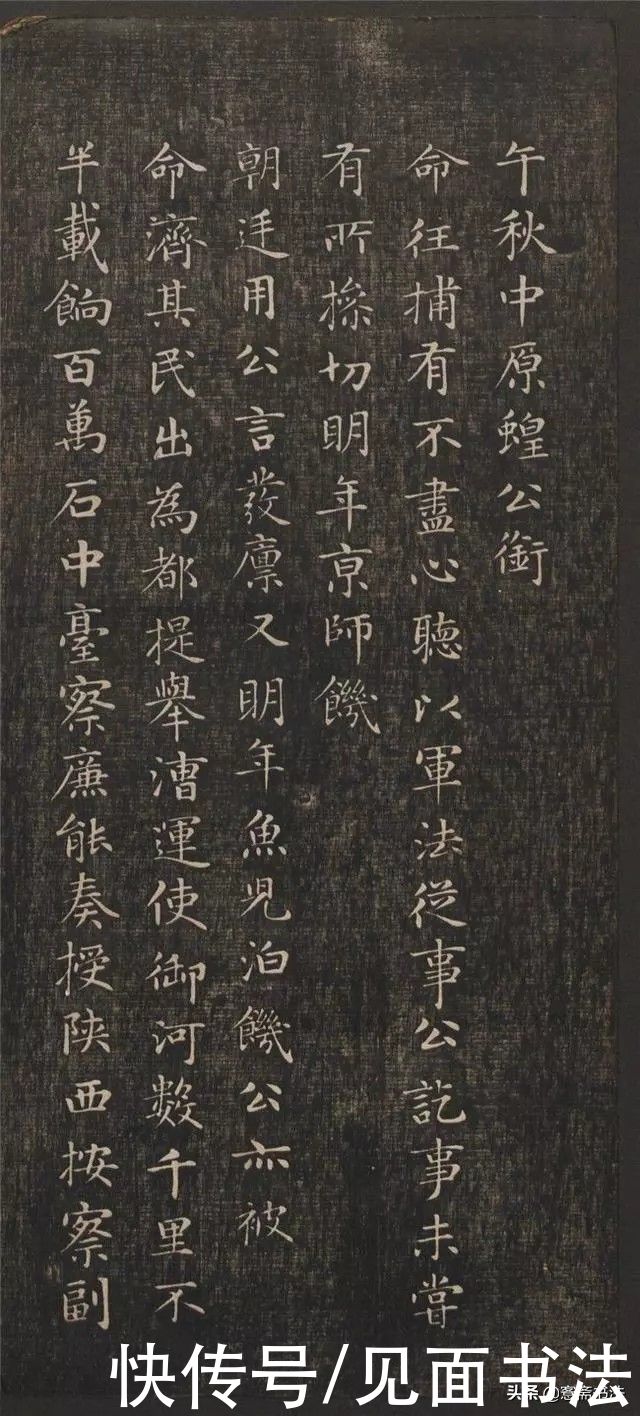 午秋中原蝗公銜
命往捕有不盡心聽以軍法從事公訖事未嘗
有所操切明年京師饑
朝廷用公言發廪又明年魚児泊饑公亦被
命濟其民出為都提舉漕運使御河数千里不
半載餉百萬石中臺察廉能奏授陕西按察副
快传号/见面书法
头条@寒斋书法